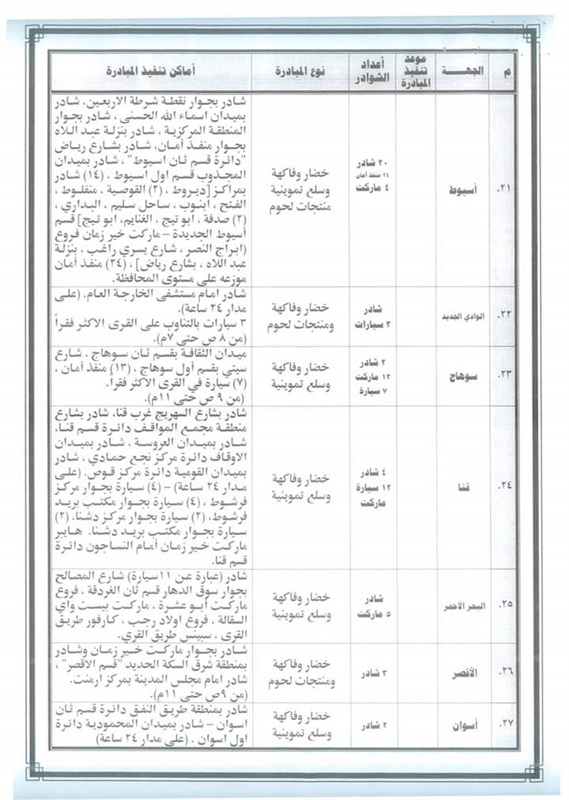 م
الجهـــة
موعد
تنفيذ
المبادرة
أعداد
الشوادر
نوع المبادرة
أماكن تنفيذ المبادرة
٢١.
أسيوط
٢٠ شادر
٢٤ منفذ أمان
٤ ماركت
خضار وفاكهة
وسلع تموينية
منتجات لحوم
شادر بجوار نقطة شرطة الاربعين، شادر
بميدان اسماء الله الحسنى ، شادر بجوار
المنطقة المركزية ، شادر بنزلة عبد اللاه
بجوار منفذ أمان، شادر بشارع رياض
"دائرة قسم ثان اسيوط" ، شادر بميدان
المجذوب قسم اول اسيوط ، (١٤) شادر
بمراكز [ديروط ، (٢) القوصية ، منفلوط ،
الفتح ، ابنوب ، ساحل سليم ، البداري ،
(٢) صدفة ، ابو تيج ، الغنايم، ابو تيج] قسم
أسيوط الجديدة – ماركت خير زمان فروع
(ابراج النصر ، شارع يسري راغب ، بنزلة
عبد اللاه ، بشارع رياض] ، (٢٤) منفذ أمان
موزعه على مستوى المحافظة.
٢٢.
الوادي الجديد
شادر
٣ سيارات
خضار وفاكهة
ومنتجات لحوم
شادر امام مستشفى الخارجة العام. (على
مدار ٢٤ ساعة).
٣ سيارات بالتناوب على القرى الاكثر فقراً
(من ٨ ص حتى ٧م).
٢٣.
سوهاج
٢ شادر
١٣ ماركت
٧ سيارة
خضار وفاكهة
وسلع تموينية
ميدان الثقافة بقسم ثان سوهاج ، شارع
سيتي بقسم أول سوهاج ، (١٣) منفذ أمان ،
(٧) سيارة في القرى الاكثر فقرا.
(من ٩ ص حتى ١١م).
٢٤.
قنا
٤ شادر
١٢ سيارة
ماركت
خضار وفاكهة
وسلع تموينية
شادر بشارع السهريج غرب قنا، شادر بشارع
منطقة مجمع المواقف دائرة قسم قنا،
شادر بميدان العروسة ، شادر بميدان
الاوقاف دائرة مركز نجع حمادي ، شادر
بميدان القومية دائرة مركز قوص. (على
مدار ٢٤ ساعة) – (٤) سيارة بجوار مركز
فرشوط ، (٤) سيارة بجوار مكتب بريد
فرشوط، (٢) سيارة بجوار مركز دشنا، (٢)
سيارة بجوار مكتب بريد دشنا. هايبر
ماركت خير زمان أمام النساجون دائرة
قسم قنا.
٢٥.
البحر الأحمر
شادر
٥ ماركت
خضار وفاكهة
وسلع تموينية
شادر (عبارة عن ١١ سيارة) شارع المصالح
بجوار سوق الدهار قسم ثان الغردقة ، فروع
ماركت أبو عشرة ، ماركت بيست واي
السقالة ، فروع اولاد رجب ، كارفور طريق
القرى ، سبينس طريق القري.
٢٦.
الأقصر
٣ شادر
خضار وفاكهة
ومنتجات لحوم
شادر بجوار ماركت خير زمان وشادر
بمنطقة شرق السكة الحديد "قسم الاقصر" ،
شادر امام مجلس المدينة بمركز ارمنت.
(من ٩ص حتى ١١م).
٢٧.
أسوان
٢ شادر
خضار وفاكهة
وسلع تموينية
شادر بمنطقة طريق النفق دائرة قسم ثان
اسوان – شادر بميدان المحمودية دائرة
اول اسوان . (على مدار ٢٤ ساعة)